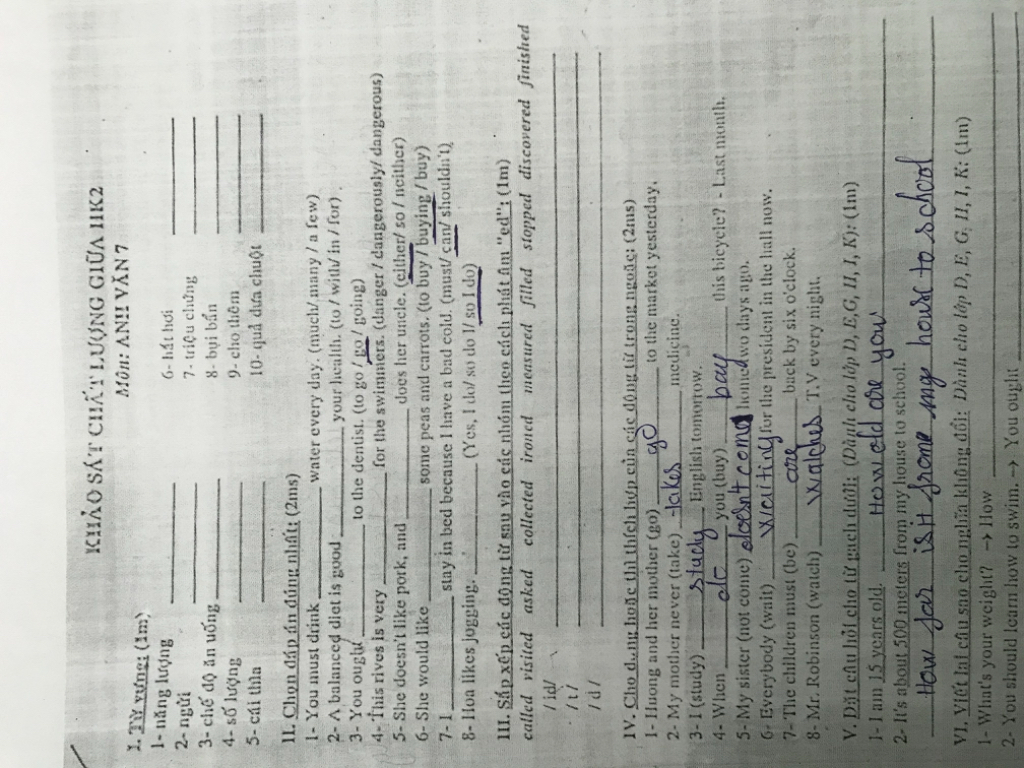 KHẢO SÁT CHẤT LƯỢNG GIỮA HK2
Môn: ANH VĂN 7
I. Từ vựng: (1m)
1- năng lượng ________ 6- hắt hơi ________
2- ngửi ________ 7- triệu chứng ________
3- chế độ ăn uống ________ 8- bụi bẩn ________
4- số lượng ________ 9- cho thêm ________
5- cái thìa ________ 10- quả dưa chuột ________
II. Chọn đáp án đúng nhất: (2ms)
1- You must drink ________ water every day. (much/ many / a few)
2- A balanced diet is good ________ your health. (to / with/ in / for)
3- You ought ________ to the dentist. (to go / go / going)
4- This rives is very ________ for the swimmers. (danger / dangerously/ dangerous)
5- She doesn't like pork, and ________ does her uncle. (either/ so / neither)
6- She would like ________ some peas and carrots. (to buy / buying / buy)
7- I ________ stay in bed because I have a bad cold. (must/ can/ shouldn't)
8- Hoa likes jogging. ________ (Yes, I do/ so do I/ so I do)
III. Sắp xếp các động từ sau vào các nhóm theo cách phát âm "ed": (1m)
called visited asked collected ironed measured filled stopped discovered finished
/ id/ ________
/ t / ________
/ d / ________
IV. Cho dạng hoặc thì thích hợp của các động từ trong ngoặc: (2ms)
1- Huong and her mother (go) go to the market yesterday.
2- My mother never (take) takes medicine.
3- I (study) study English tomorrow.
4- When you (buy) bay this bicycle? - Last month.
5- My sister (not come) doesn't come home two days ago.
6- Everybody (wait) waiting for the president in the hall now.
7- The children must (be) are back by six o'clock.
8- Mr. Robinson (watch) watches T.V every night.
V. Đặt câu hỏi cho từ gạch dưới: (Dành cho lớp D, E,G, H, I, K): (1m)
1- I am 15 years old. How old are you
2- It's about 500 meters from my house to school.
How far is it frome my house to school
VI. Viết lại câu sao cho nghĩa không đổi: Dành cho lớp D, E, G, H, I, K: (1m)
1- What's your weight? → How ________
2- You should learn how to swim. → You ought ________